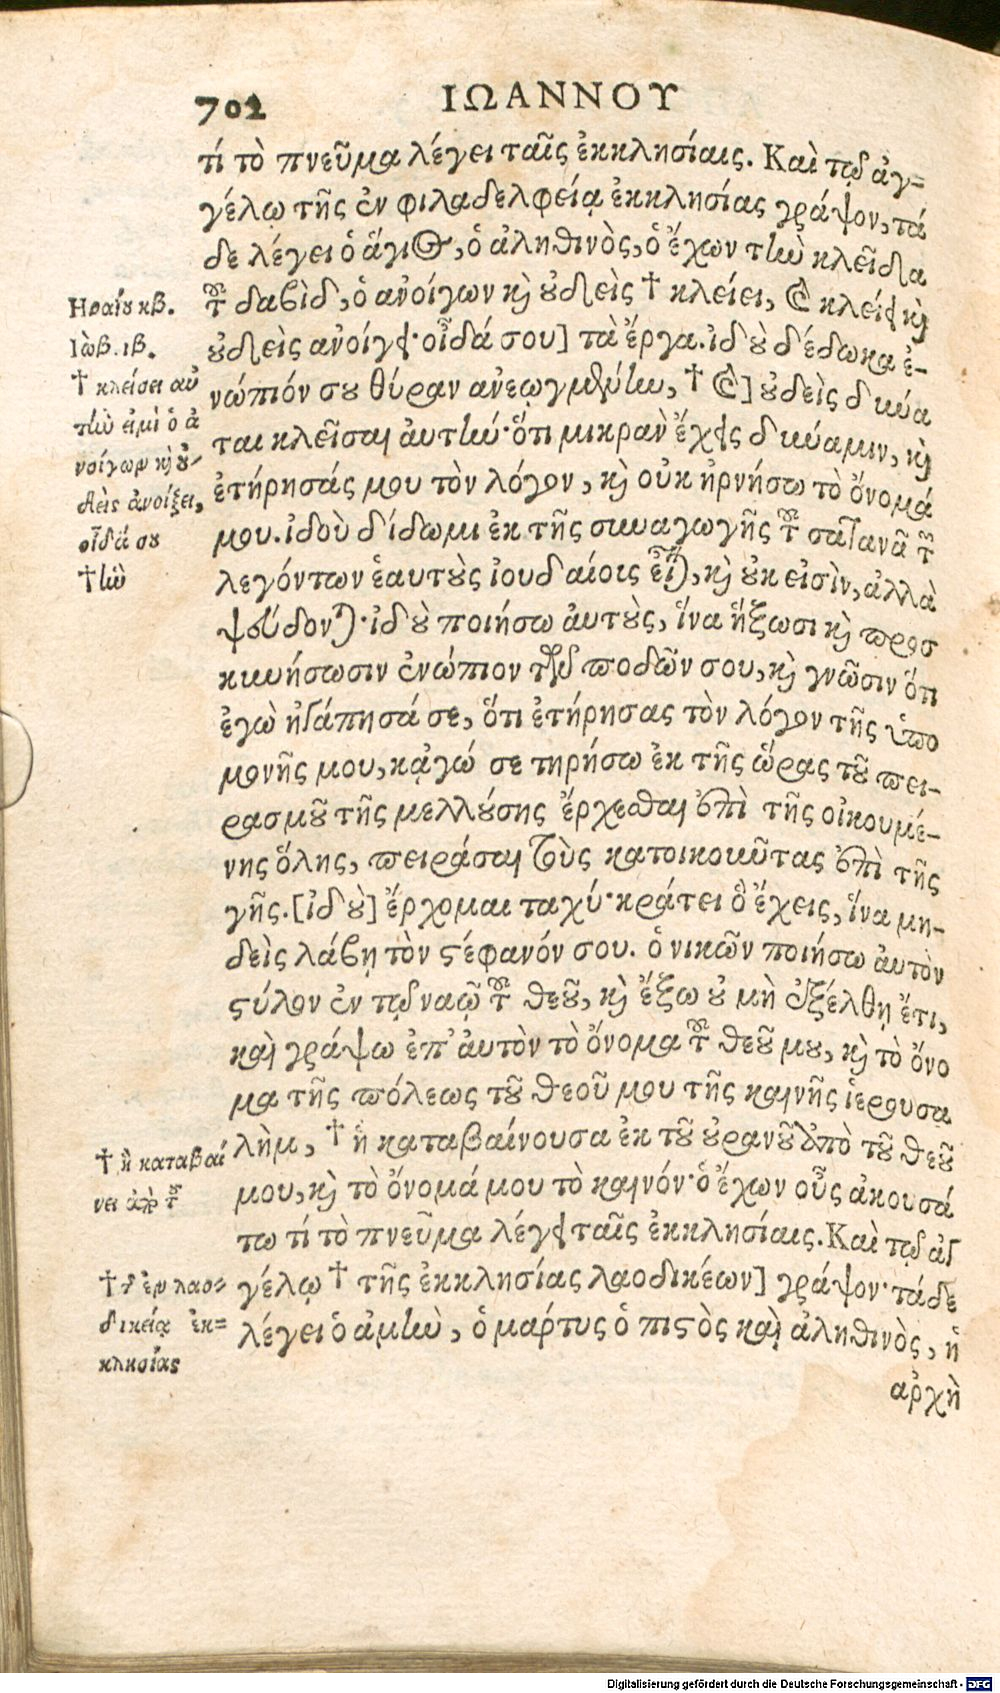 702 ΙΩΑΝΝΟΥ
τί τὸ πνεῦμα λέγει ταῖς ἐκκλησίαις. Καὶ τῷ ἀγ=
γέλῳ τῆς ἐν φιλαδελφείᾳ ἐκκλησίας γράψον, τά
δε λέγει ὁ ἅγιος, ὁ ἀληθινὸς, ὁ ἔχων τὴν κλεῖδα
τοῦ δαβὶδ, ὁ ἀνοίγων καὶ οὐδεὶς † κλείει, καὶ κλείει καὶ
οὐδεὶς ἀνοίγει· οἶδά σου] τὰ ἔργα. ἰδοὺ δέδωκα ἐ-
νώπιόν σου θύραν ἀνεῳγμένην, † καὶ] οὐδεὶς δύνα
ται κλεῖσαι ἀυτήν· ὅτι μικρὰν ἔχεις δύναμιν, καὶ
ἐτήρησάς μου τὸν λόγον, καὶ οὐκ ἠρνήσω τὸ ὄνομά
μου. ἰδοὺ δίδωμι ἐκ τῆς συναγωγῆς τοῦ σατανᾶ τῶν
λεγόντων ἑαυτοὺς ἰουδαίοις εἶναι, καὶ οὐκ εἰσὶν, ἀλλὰ
ψεύδονται· ἰδοὺ ποιήσω ἀυτοὺς, ἵνα ἥξωσι καὶ προσ
κυνήσωσιν ἐνώπιον τῶν ποδῶν σου, καὶ γνῶσιν ὅτι
ἐγὼ ἠγάπησά σε, ὅτι ἐτήρησας τὸν λόγον τῆς ὑπο
μονῆς μου, κᾀγώ σε τηρήσω ἐκ τῆς ὥρας τοῦ πει-
ρασμοῦ τῆς μελλούσης ἔρχεσθαι ἐπὶ τῆς οἰκουμέ-
νης ὅλης, πειράσαι τοὺς κατοικοῦντας ἐπὶ τῆς
γῆς. [ἰδοὺ] ἔρχομαι ταχύ· κράτει ὃ ἔχεις, ἵνα μη-
δεὶς λάβῃ τὸν στέφανόν σου. ὁ νικῶν ποιήσω ἀυτὸν
στύλον ἐν τῷ ναῷ τοῦ θεοῦ, καὶ ἔξω οὐ μὴ ἐξέλθῃ ἔτι,
καὶ γράψω ἐπ' ἀυτὸν τὸ ὄνομα τοῦ θεοῦ μου, καὶ τὸ ὄνο
μα τῆς πόλεως τοῦ θεοῦ μου τῆς καινῆς ἱερουσα
λὴμ, † ἡ καταβαίνουσα ἐκ τοῦ οὐρανοῦ ἀπὸ τοῦ θεοῦ
μου, καὶ τὸ ὄνομά μου τὸ καινόν· ὁ ἔχων οὖς ἀκουσά
τω τί τὸ πνεῦμα λέγει ταῖς ἐκκλησίαις. Καὶ τῷ ἀγ
γέλῳ † τῆς ἐκκλησίας λαοδικέων] γράψον· τάδε
λέγει ὁ ἀμὴν, ὁ μάρτυς ὁ πιστὸς καὶ ἀληθινὸς, ἡ
αρχὴ
Ησαΐου κβ.
Ἰὼβ. ιβ.
† κλείσει αὐ
τὴν εἰ μὶ ὁ ἀ
νοίγων καὶ οὐ-
δεὶς ἀνοίξει,
οἶδά σου
† ἣν
† ἣ καταβαί
νει ἀπὸ τοῦ
† τῆς ἐν λαο=
δικείᾳ ἐκ=
κλησίας
Digitalisierung gefördert durch die Deutsche Forschungsgemeinschaft - DFG